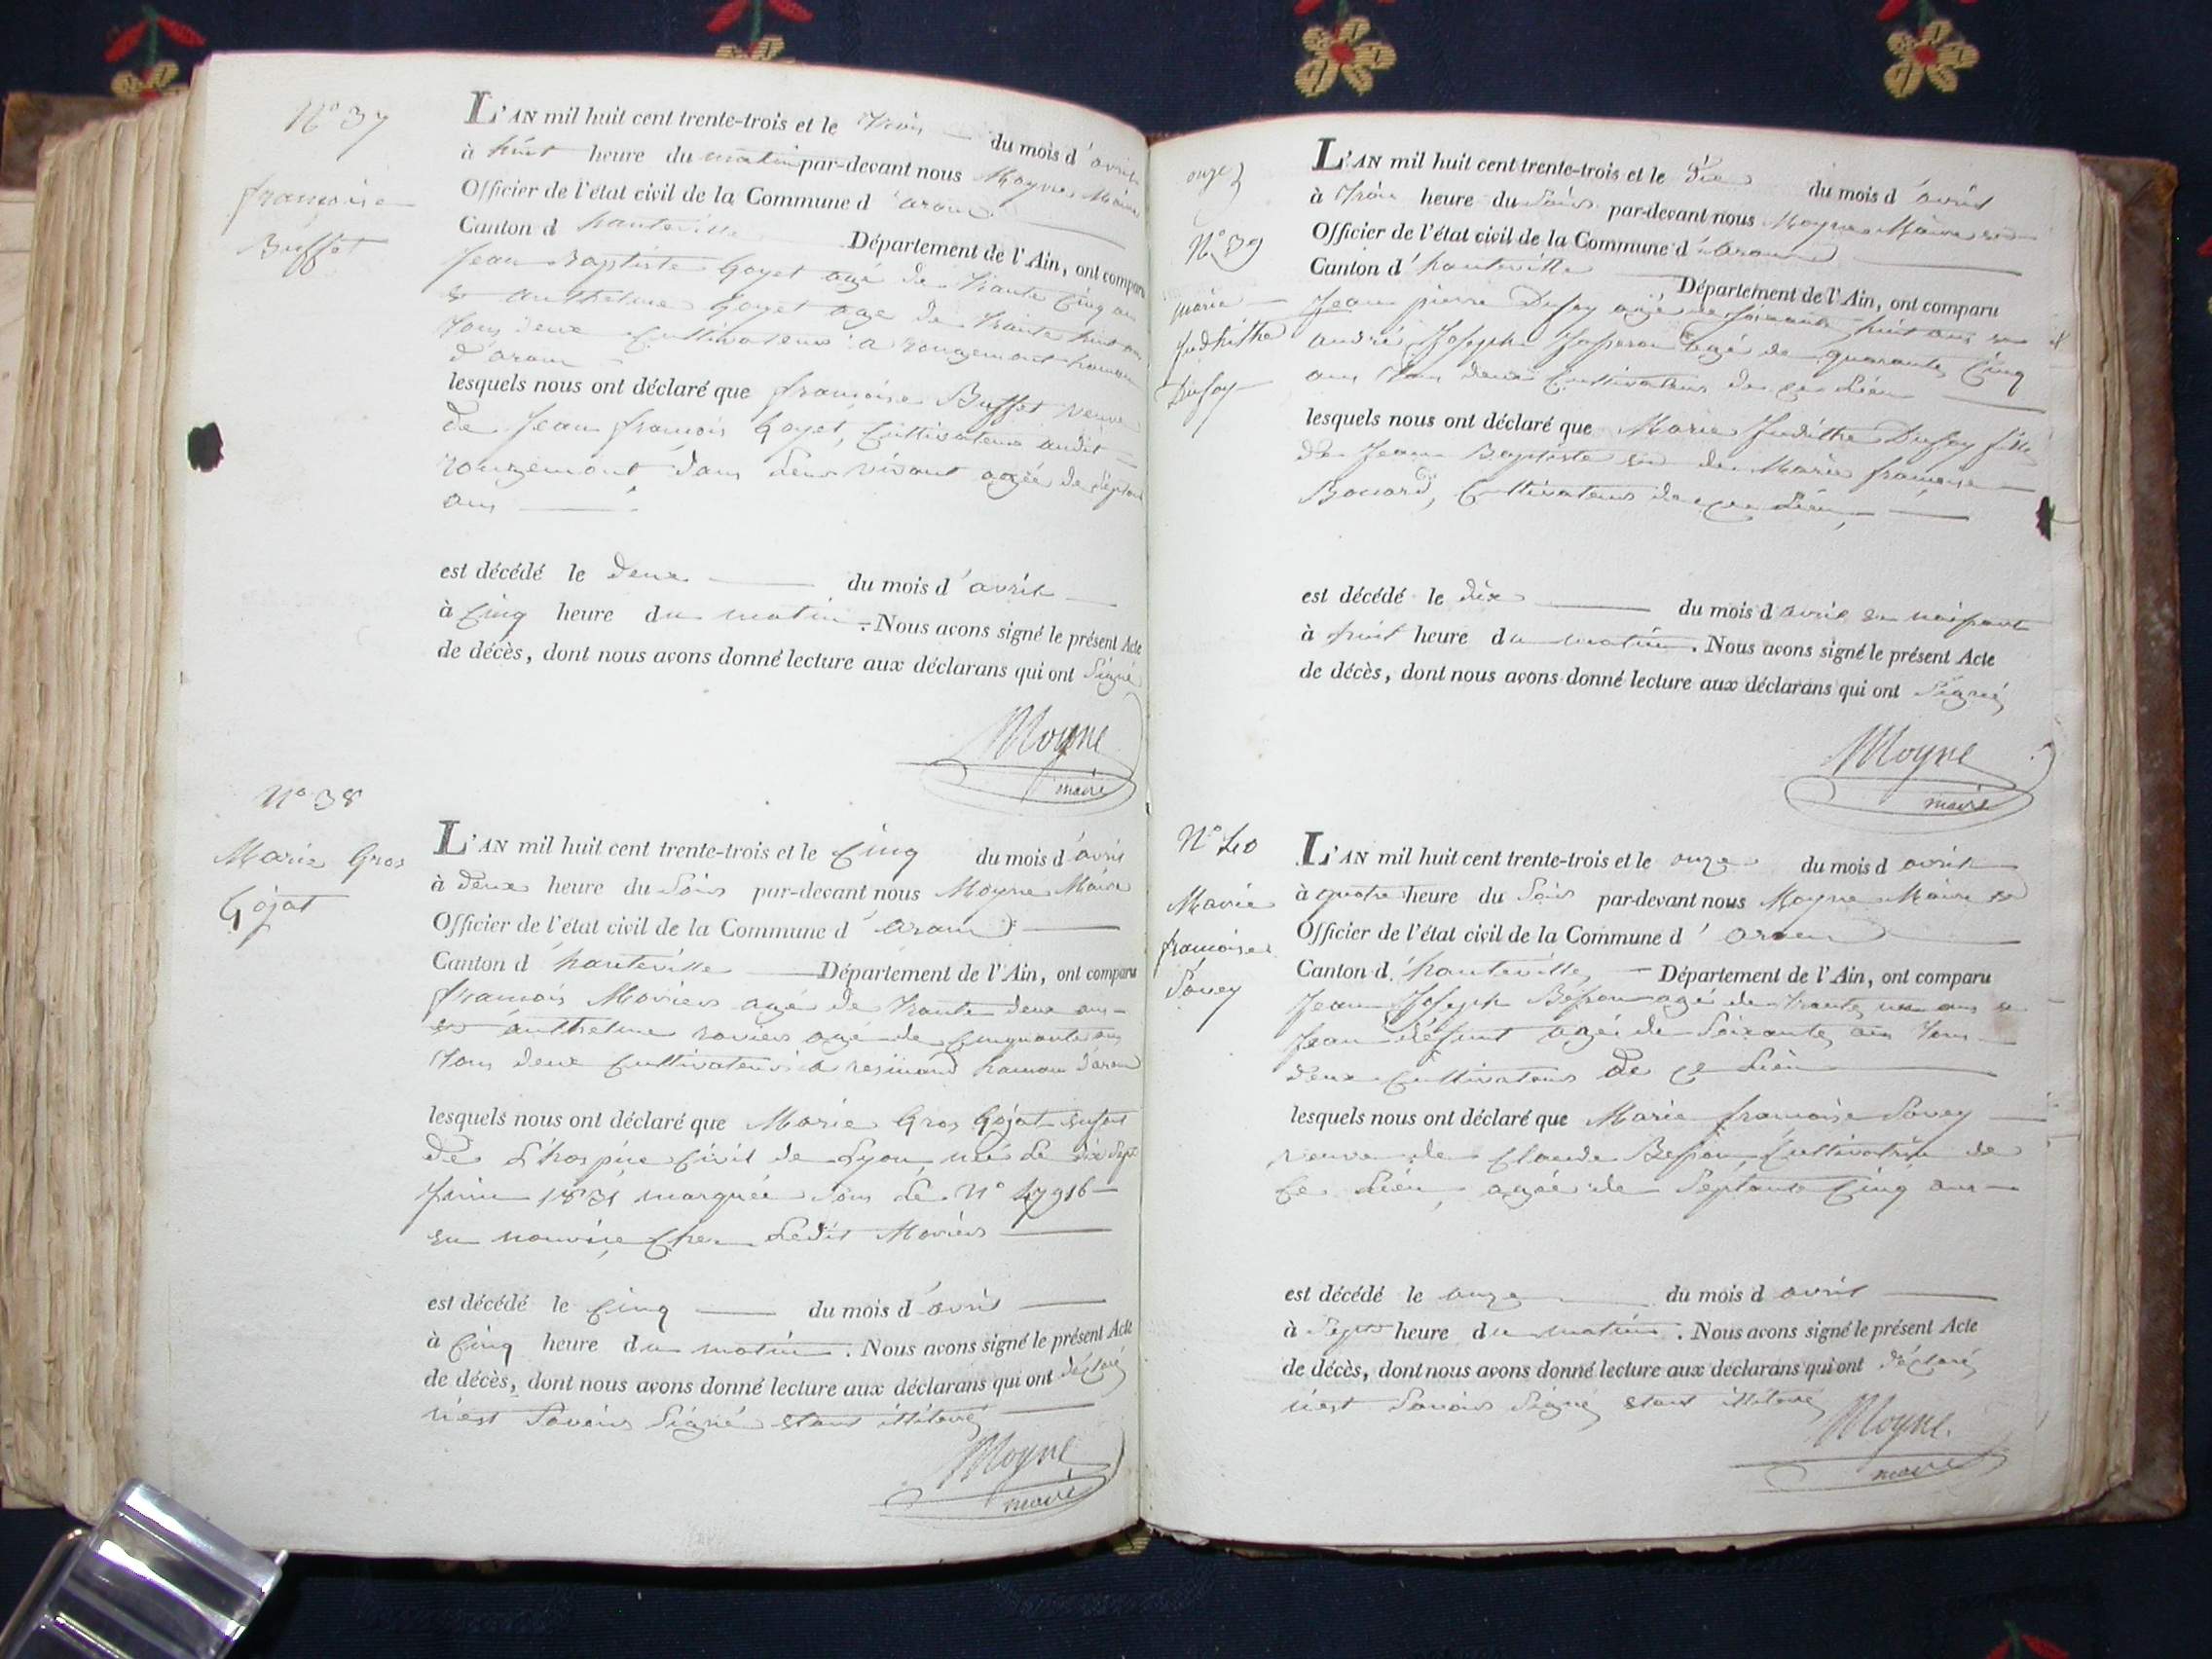 N° 37
françoise
Buffet
L'AN mil huit cent trente-trois et le trois du mois d'avril
à huit heure du matin par-devant nous Moyne Maire
Officier de l'état civil de la Commune d'aran
Canton d hauteville Département de l'Ain, ont comparu
Jean Baptiste Goyet agé de trante Cinq ans
et anthelme Goyet age de trante huit ans
tous deux Cultivateurs a rougemont hameau
d'aran
lesquels nous ont déclaré que françoise Buffet veuve
de Jean françois Goyet, Cultivateurs audit
rougemont, dans leur vivant agée de septante
ans
est décédé le deux du mois d'avril
à Cinq heure du matin. Nous avons signé le présent Acte
de décès, dont nous avons donné lecture aux déclarans qui ont Signé
Moyne
maire
N° 38
Marie Gros
Gojat
L'AN mil huit cent trente-trois et le Cinq du mois d'avril
à deux heure du Soir par-devant nous Moyne Maire
Officier de l'état civil de la Commune d'aran
Canton d'hauteville Département de l'Ain, ont comparu
françois Moriers agé de trante deux ans
et anthelme roviers agé de Cinquante ans
tous deux Cultivateurs a resinand hameau daran
lesquels nous ont déclaré que Marie Gros Gojat enfant
de L'hospice Civil de Lyon, née Le dix Sept
Juin 1831 marquée Sous Le N° 47916
en nourice Chez Ledit Moriers
est décédé le Cinq du mois d'avril
à Cinq heure du matin. Nous avons signé le présent Acte
de décès, dont nous avons donné lecture aux déclarans qui ont déclaré
n'est Savoir Signé etant illiteré
Moyne
maire
onze
N° 39
marie
Judhithe
Dufay
L'AN mil huit cent trente-trois et le dix du mois d'avril
à trois heure du Soir par-devant nous Moyne Maire et
Officier de l'état civil de la Commune d'aran
Canton d'hauteville Département de l'Ain, ont comparu
Jean pierre Dufay agé de soixante huit ans et
andré Joseph agé de quarante Cinq
ans tous deux Cultivateurs de ce Lieu
lesquels nous ont déclaré que Marie Judithe Dufay fille
de Jean Baptiste et de Marie françoise
Cultivateurs de ce Lieu,
est décédé le dix du mois d avril en naissant
à huit heure du matin. Nous avons signé le présent Acte
de décès, dont nous avons donné lecture aux déclarans qui ont Signé
Moyne
maire
N° 40
Marie
françoise
Savey
L'AN mil huit cent trente-trois et le onze du mois d avril
à quatre heure du Soir par-devant nous Moyne Maire et
Officier de l'état civil de la Commune d'aran
Canton d'hauteville Département de l'Ain, ont comparu
Jean Joseph Besson agé de trante un ans et
Jean agé de Soixante ans tous
deux Cultivateurs de ce Lieu
lesquels nous ont déclaré que Marie françoise Savey
veuve de Claude Besson, Cultivatrice de
Ce Lieu, agée de Septante Cinq ans
est décédé le onze du mois d avril
à Sept heure du matin. Nous avons signé le présent Acte
de décès, dont nous avons donné lecture aux déclarans qui ont déclaré
n'est Savoir Signé etant illiteré
Moyne
maire